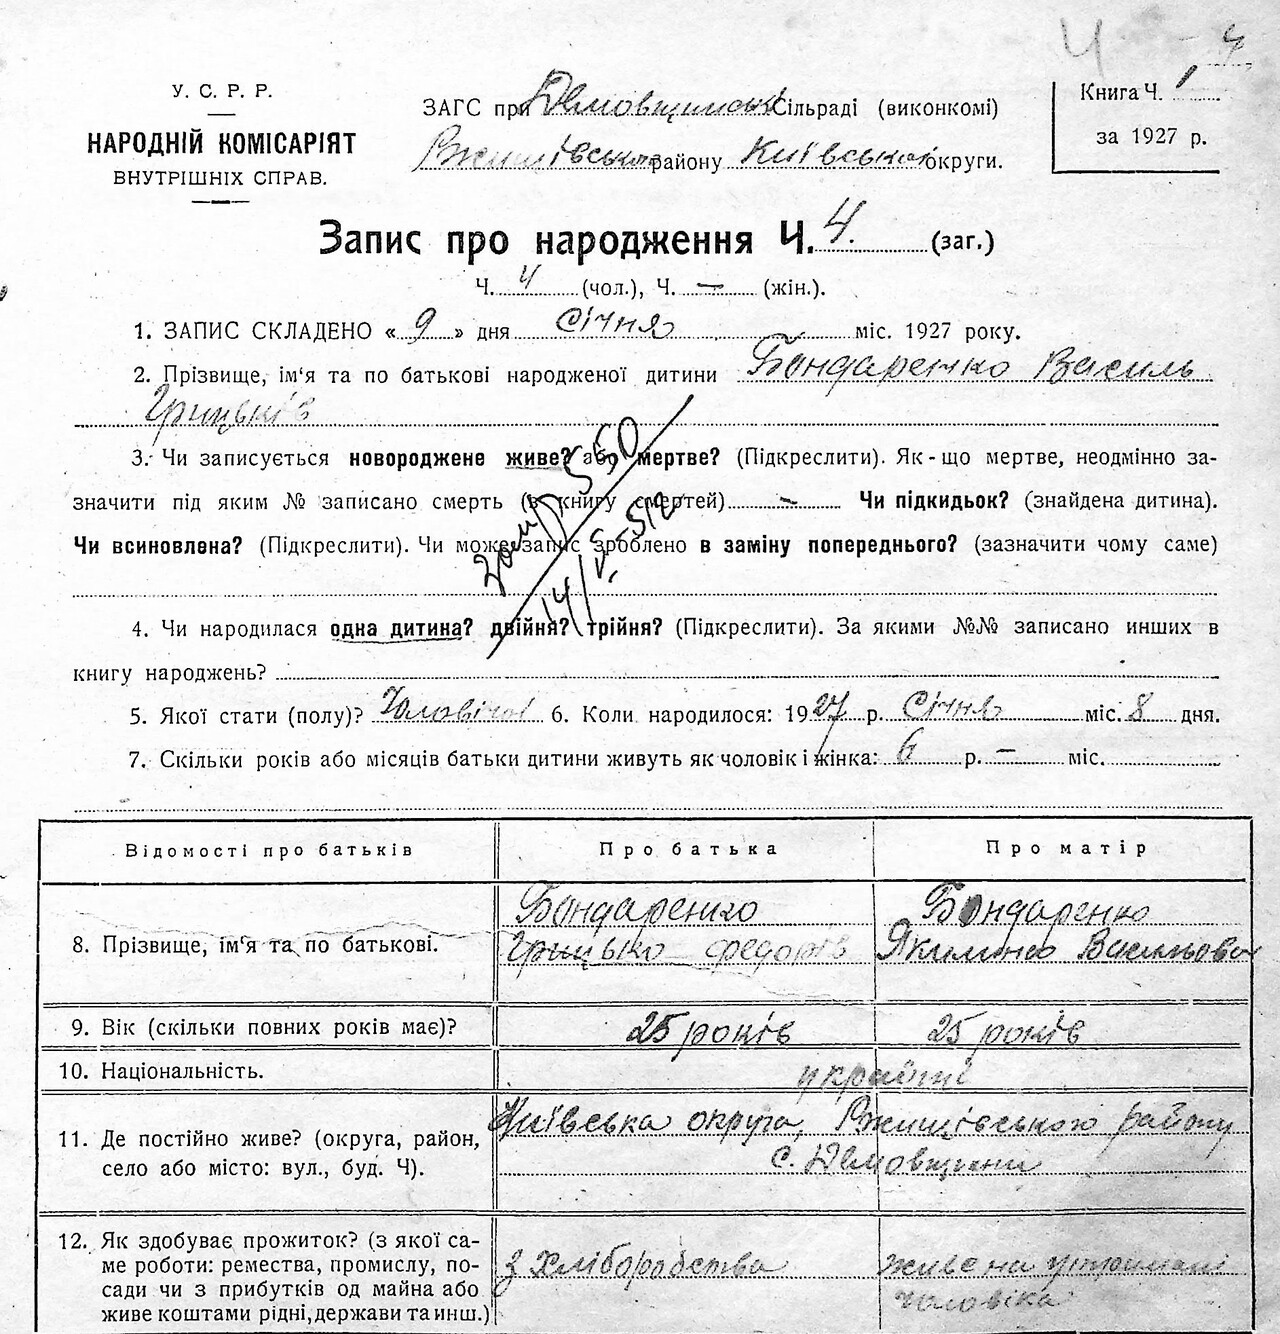 Ч 4
У. С. Р. Р.
НАРОДНІЙ КОМІСАРІЯТ
ВНУТРІШНІХ СПРАВ.
ЗАГС при Демовщинській Сільраді (виконкомі)
Ржищівського району Київської округи.
Книга Ч. 1
за 1927 р.
Запис про народження Ч. 4. (заг.)
Ч. 4 (чол.), Ч. — (жін.).
1. ЗАПИС СКЛАДЕНО « 9 » дня січня міс. 1927 року.
2. Прізвище, ім‘я та по батькові народженої дитини Бондаренко Василь
Грицьків
3. Чи записується новороджене живе? або мертве? (Підкреслити). Як-що мертве, неодмінно за-
значити під яким № записано смерть (в книгу смертей) — Чи підкидьок? (знайдена дитина).
Чи всиновлена? (Підкреслити). Чи може запис зроблено в заміну попереднього? (зазначити чому саме)
550
4. Чи народилася одна дитина? двійня? трійня? (Підкреслити). За якими №№ записано инших в
книгу народжень?
5. Якої стати (полу)? Чоловічої 6. Коли народилося: 1927 р. Січня міс. 8 дня.
7. Скільки років або місяців батьки дитини живуть як чоловік і жінка: 6 р. — міс.
Відомості про батьків Про батька Про матір
Бондаренко Бондаренко
8. Прізвище, ім‘я та по батькові. Грицько Федорів Якилина Васильова
9. Вік (скільки повних років має)? 25 років 25 років
10. Національність. україні
11. Де постійно живе? (округа, район, Київська округа, Ржищівського району
село або місто: вул., буд. Ч). с. Демовщини
12. Як здобуває прожиток? (з якої са-
ме роботи: ремества, промислу, по- з Хліборобства живе на утриманні
сади чи з прибутків од майна або чоловіка
живе коштами рідні, держави та инш.)